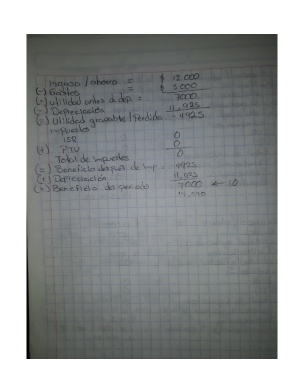 Ingreso / ahorro = $ 12,000
(-) Gastos = $ 5,000
(=) utilidad antes d dep = 7000
(-) Depreciación 11,925
(=) Utilidad gravable / Perdida - 4925
impuestos
ISR 0
(+) PTU 0
Total de impuestos 0
(=) Beneficio despues. de imp = -4925
(+) Depreciación 11,925
(=) Beneficio del periodo 7000 ← 10